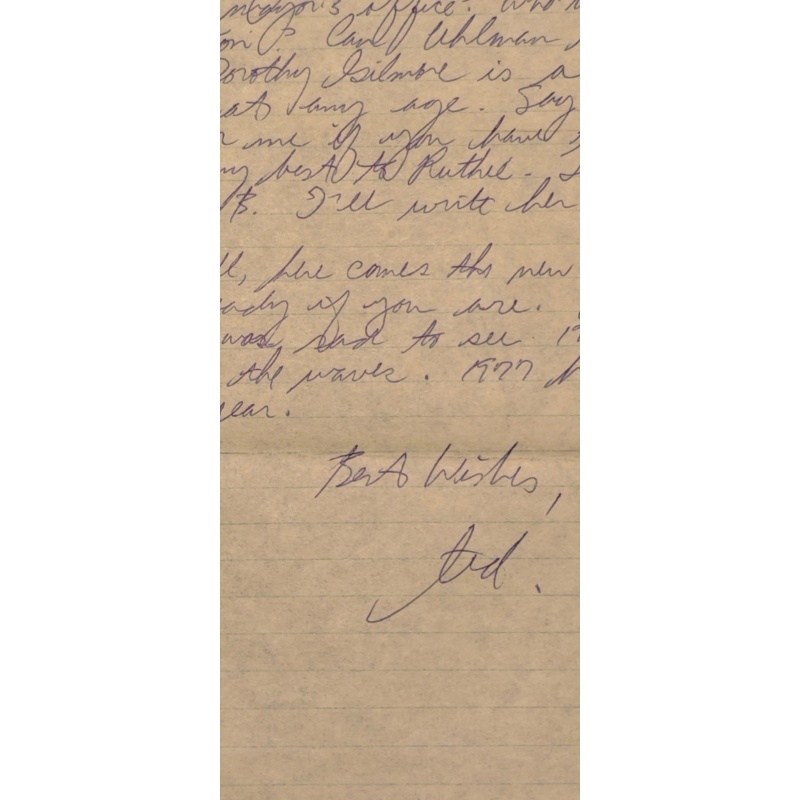 mayor's office. Who
on? Can Uhlman
Dorothy Gilmore is a
at any age. Say
me if you have
my best to Ruthie.
B. I'll write her
ll, here comes the new
eady if you are.
was sad to see 19
the waves. 1977
year.
Best Wishes,
ted.